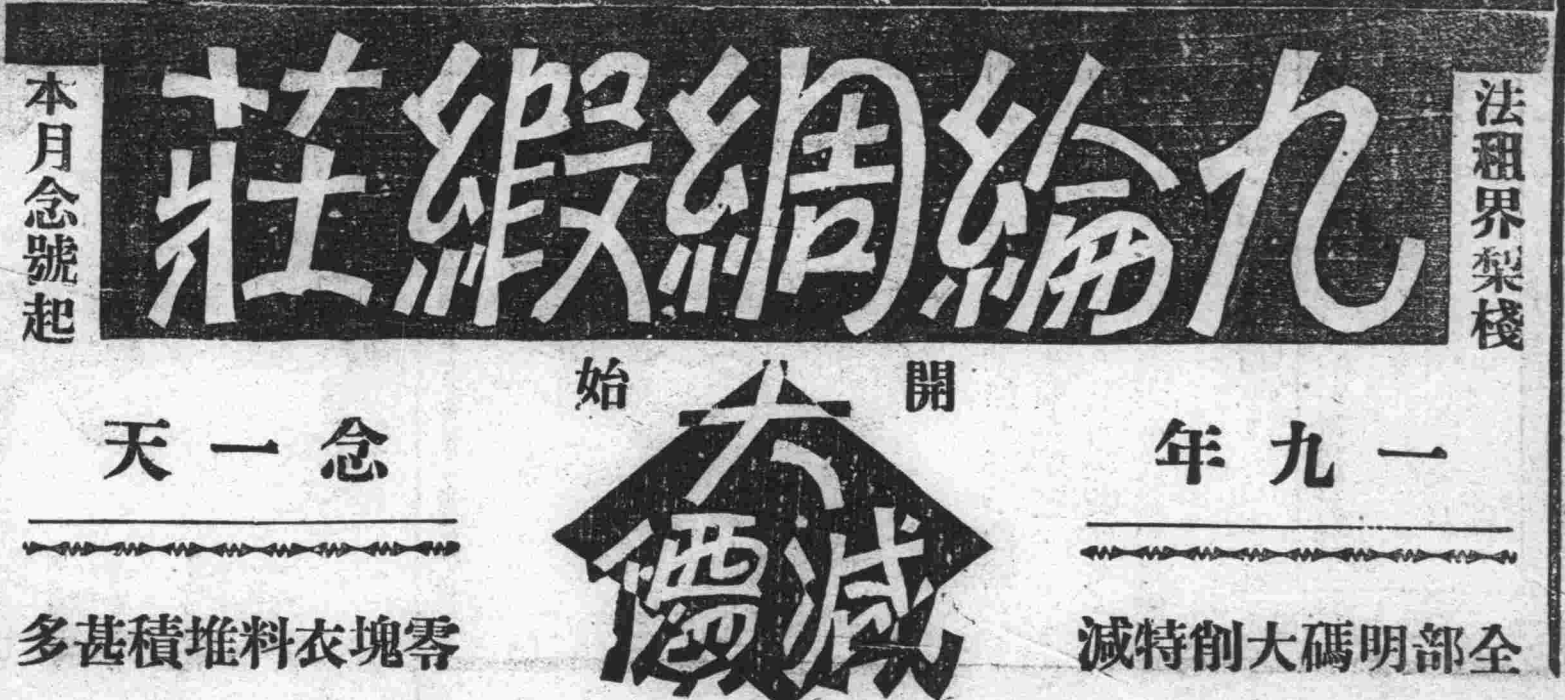 法租界梨棧
九綸綢緞莊
本月念號起
開始
大減價
一九年
念一天
全部明碼大削特減
零塊衣料堆積甚多